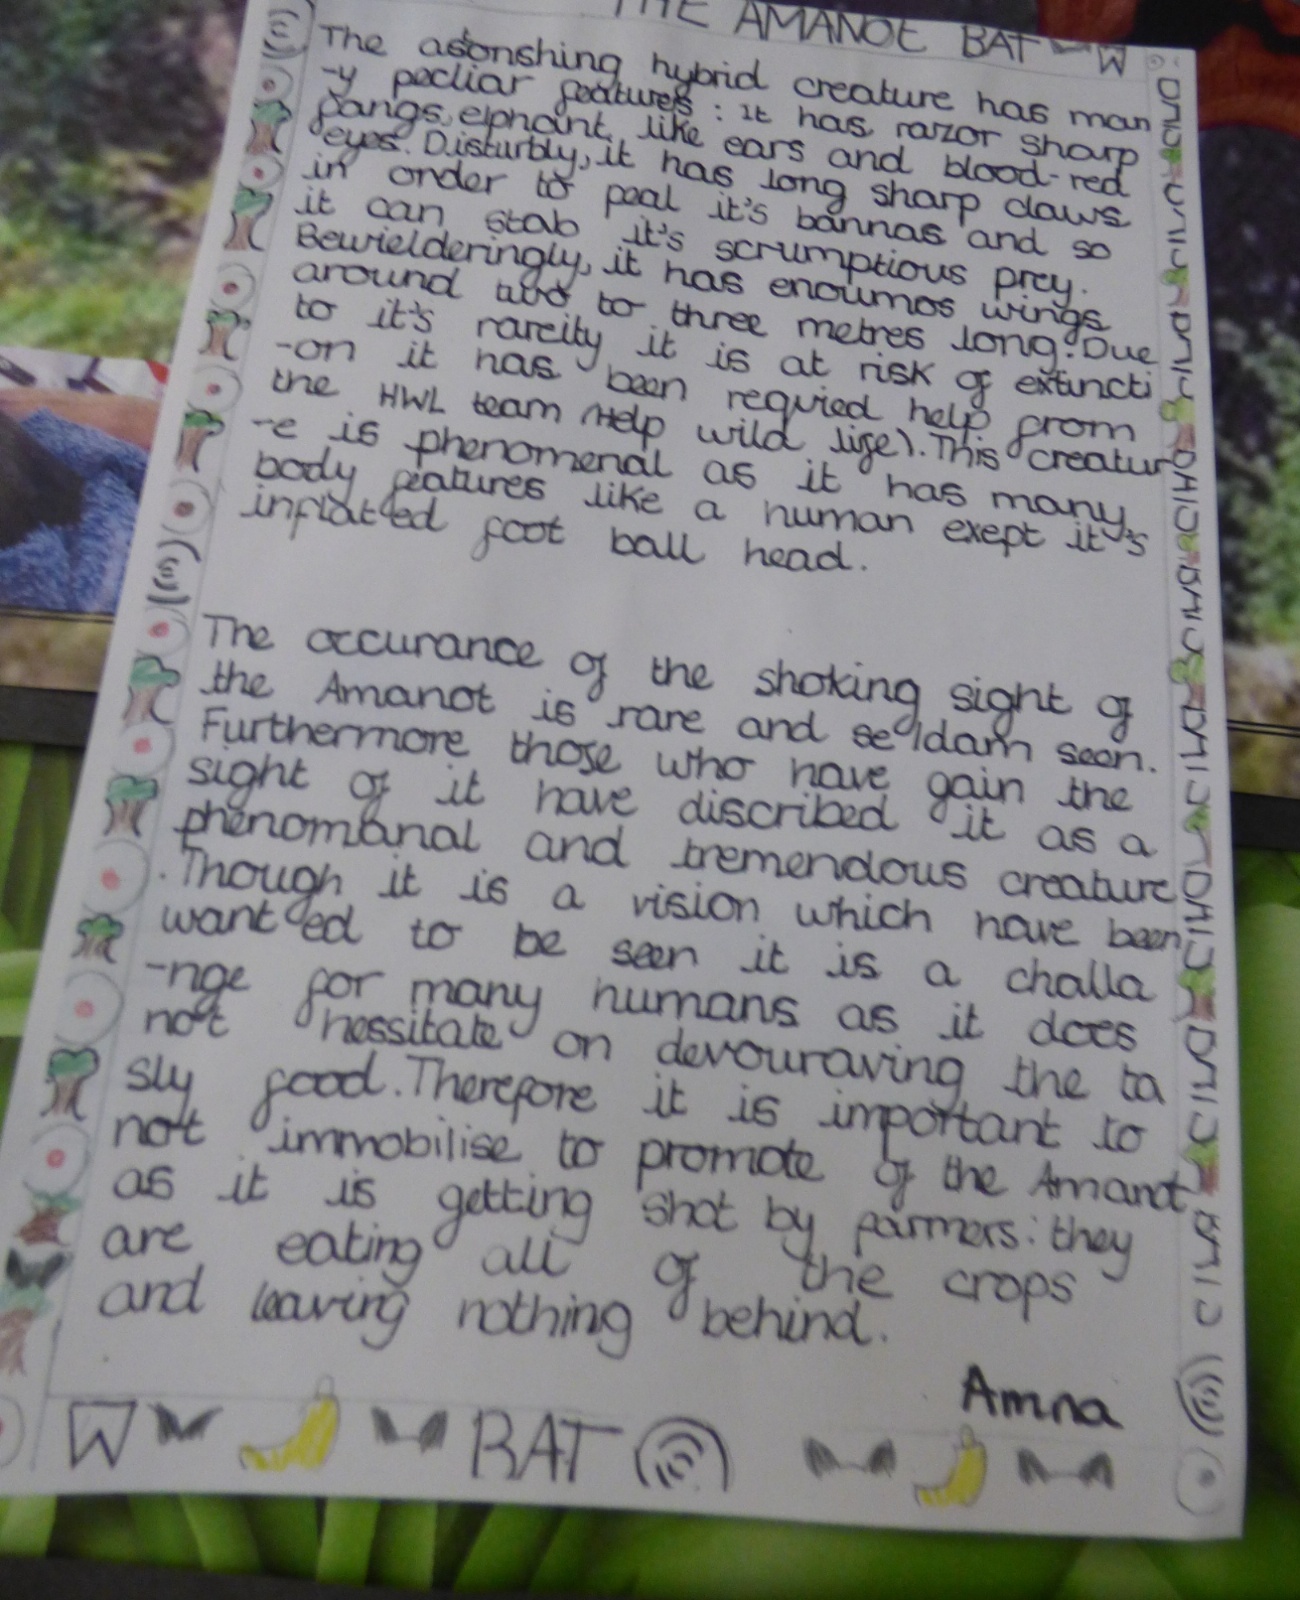 THE AMANOT BAT
The astonshing hybrid creature has man
-y pecliar features : it has razor sharp
fangs, elphant like ears and blood-red
eyes. Disturbly, it has long sharp claws
in order to peal it's bannas and so
it can stab it's scrumptious prey.
Bewielderingly, it has enoumos wings
around two to three metres long. Due
to it's rareity it is at risk of extincti
-on it has been requried help from
the HWL team (Help wild life). This creatur
-e is phenomenal as it has many
body features like a human exept it's
inflated foot ball head.
The occurance of the shoking sight of
the Amanot is rare and seldam seen.
Furthermore those who have gain the
sight of it have discribed it as a
phenomanal and tremendous creature
. Though it is a vision which have been
wanted to be seen it is a challa
-nge for many humans as it does
not hessitate on devouraving the ta
sly food. Therefore it is important to
not immobilise to promote of the Amanot
as it is getting shot by farmers : they
are eating all of the crops
and leaving nothing behind.
Amna
BAT